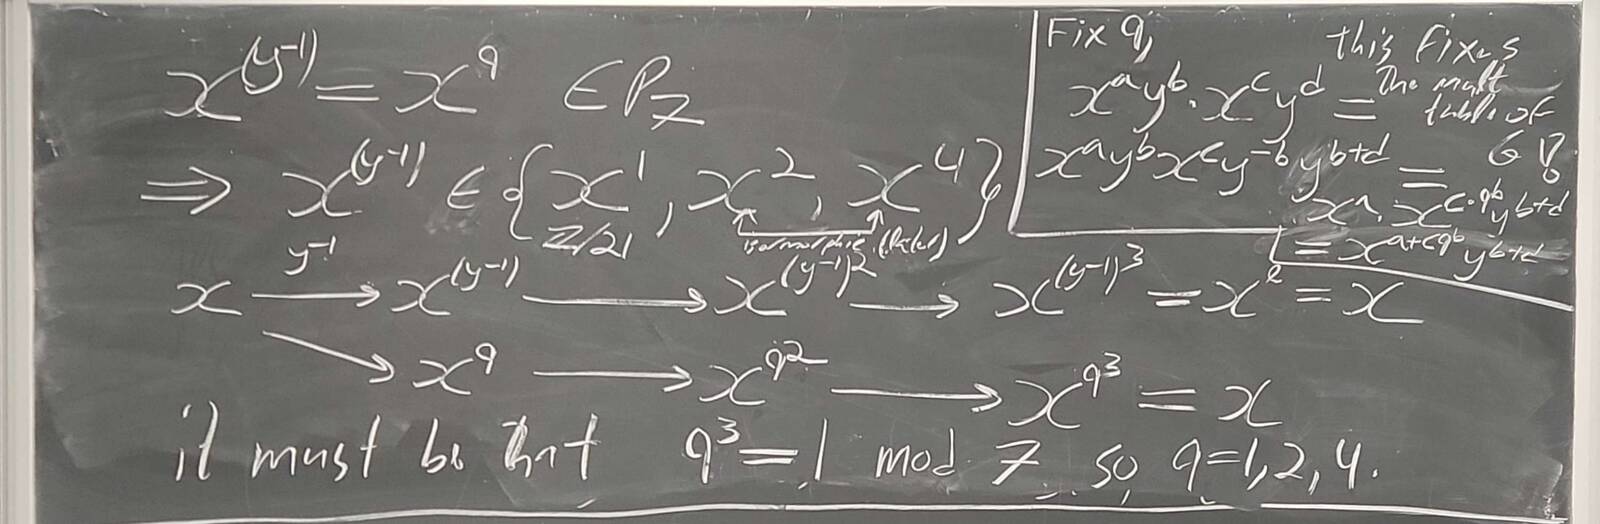 x^(y^-1) = x^q ∈ P_7
⟹ x^(y^-1) ∈ {x^1, x^2, x^4}
Z/21 isomorphic (later)
x —y^-1→ x^(y^-1) → x^(y^-1)^2 → x^(y^-1)^3 = x^e = x
→ x^q → x^q^2 → x^q^3 = x
it must be that q^3 = 1 mod 7 so q = 1, 2, 4.
Fix q, this fixes
the mult
table of
G!
x^a y^b · x^c y^d =
x^a y^b x^c y^-b y^b+d =
x^a · x^c·q^b y^b+d
= x^a+cq^b y^b+d